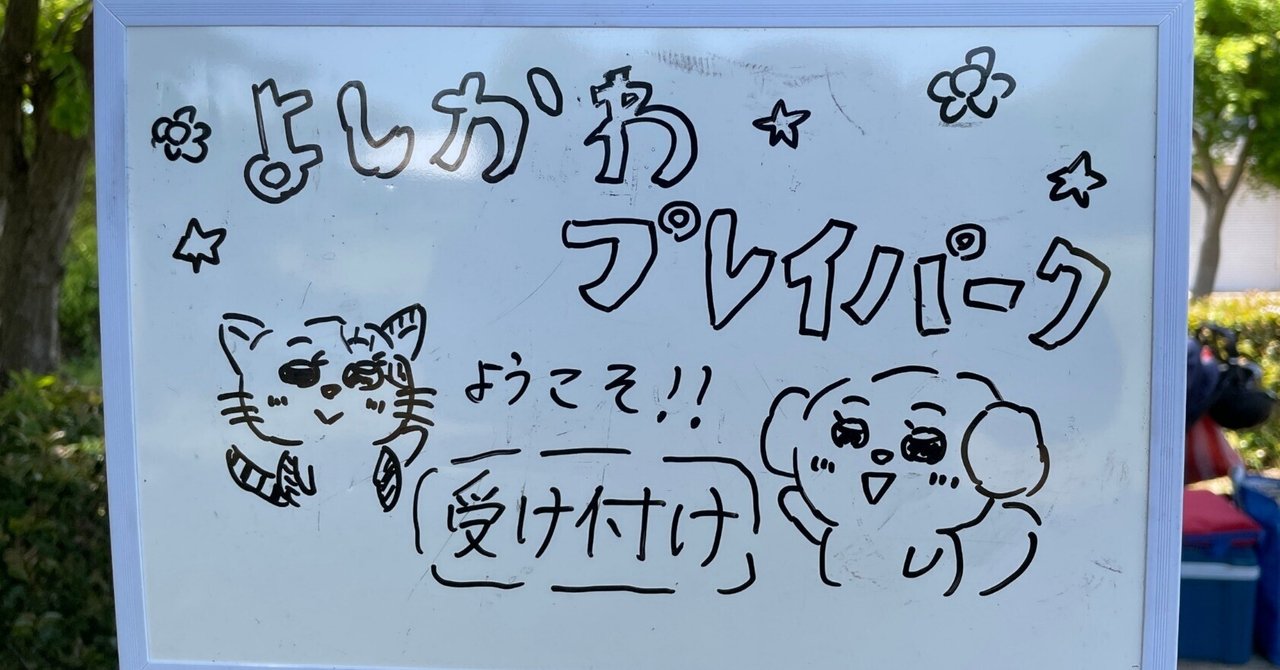 よしかわ
プレイパーク
ようこそ!!
受け付け